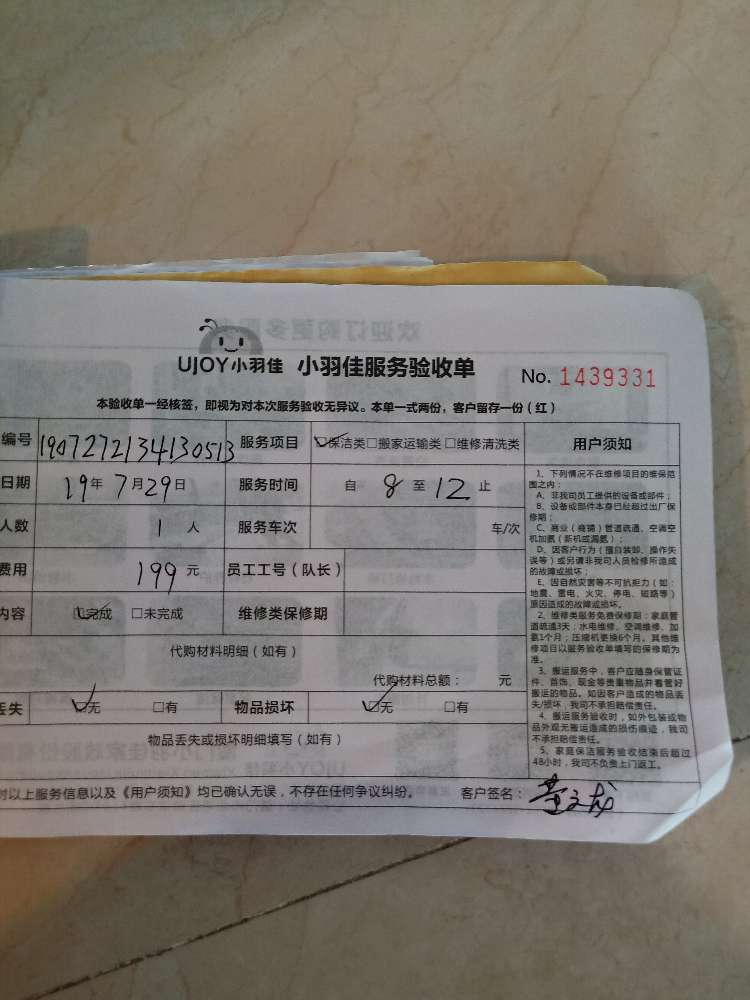 UJOY小羽佳 小羽佳服务验收单 No. 1439331
本验收单一经核签，即视为对本次服务验收无异议。本单一式两份，客户留存一份（红）
编号 1907272134130513 服务项目 ☑保洁类□搬家运输类□维修清洗类
日期 19年7月29日 服务时间 自 8 至 12 止
人数 1 人 服务车次 车/次
费用 199 元 员工工号（队长）
内容 ☑完成 □未完成 维修类保修期
代购材料明细（如有）
代购材料总额： 元
丢失 ☑无 □有 物品损坏 ☑无 □有
物品丢失或损坏明细填写（如有）
对以上服务信息以及《用户须知》均已确认无误，不存在任何争议纠纷。 客户签名：董文龙
用户须知
1、下列情况不在维修项目的维保范
围之内：
A、非我司员工提供的设备或部件；
B、设备或部件本身已经超过出厂保
修期；
C、商业（商铺）管道疏通、空调空
机加氨（新机或漏氨）；
D、因客户行为（擅自装卸、操作失
误等）或另请非我司人员检修所造成
的故障或损坏；
E、因自然灾害等不可抗拒力（如：
地震、雷电、火灾、停电、短路等）
原因造成的故障或损坏。
2、维修类服务免费保修期：家庭管
道疏通3天；水电维修、空调维修、加
氨1个月；压缩机更换6个月。其他维
修项目以服务验收单填写的保修期为
准。
3、搬运服务中，客户应随身保管证
件、首饰、现金等贵重物品并看管好
搬运的物品。如因客户造成的物品丢
失/损坏，我司不承担赔偿责任。
4、搬运服务验收时，如外包装或物
品外观无搬运造成的损伤痕迹，我司
不承担赔偿责任。
5、家庭保洁服务验收结束后超过
48小时，我司不负责上门返工。